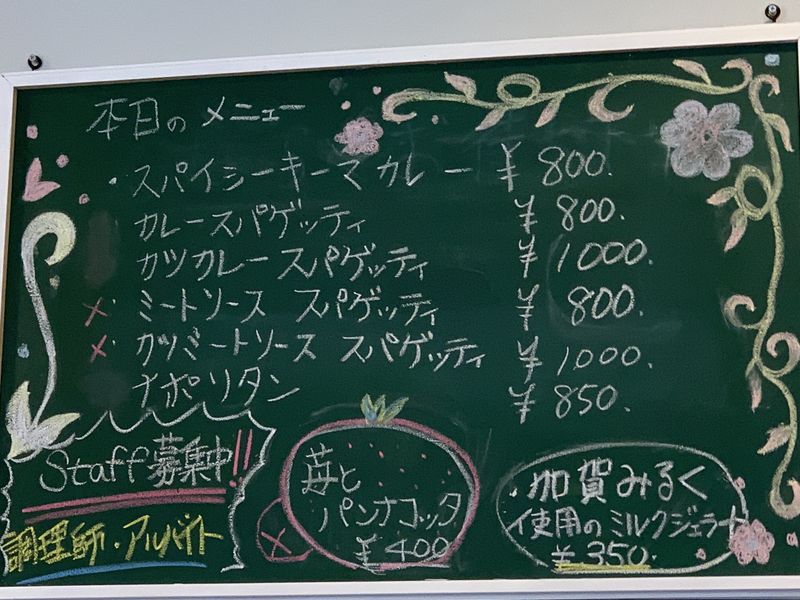 本日の メニュー
・スパイシーキーマカレー ¥800.
カレースパゲッティ ¥800.
カツカレースパゲッティ ¥1000.
×・ミートソース スパゲッティ ¥800.
×・カツミートソース スパゲッティ ¥1000.
ナポリタン ¥850.
Staff募集中!!
調理師・アルバイト
苺と
パンナコッタ
× ¥400
加賀みるく
使用のミルクジェラート
¥350.